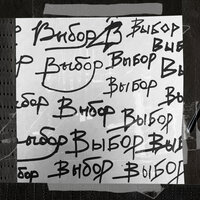 Выбор В Выбор
Выб
Выбор Выбор
Выбор Вы
бор Выбор
Выбор
Выбор Выбор
Выбор Выбор